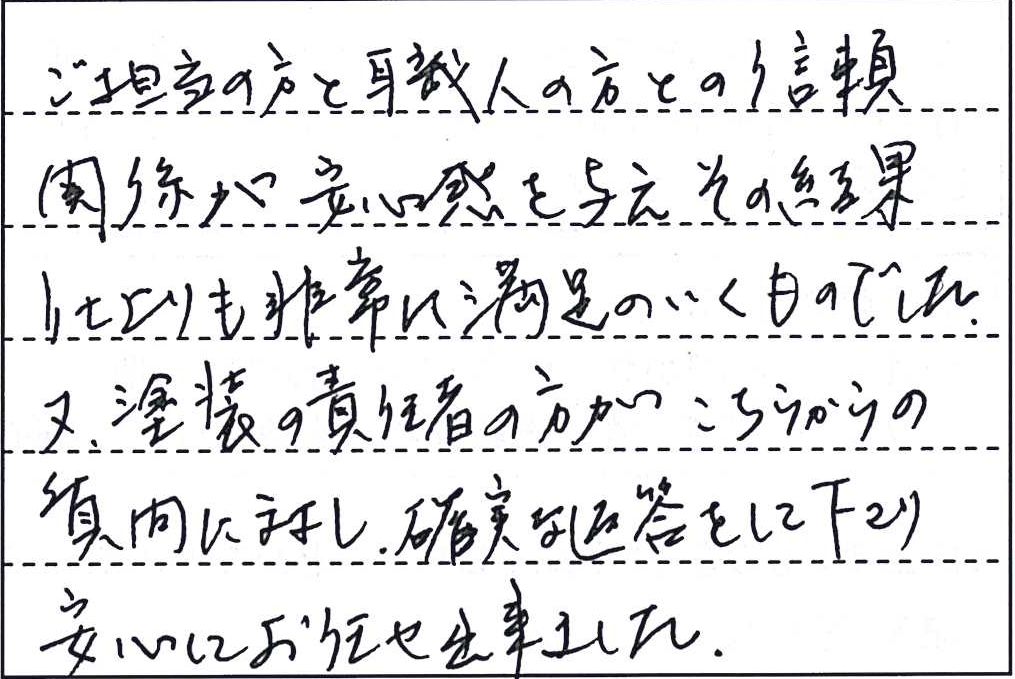 ご担当の方と職人の方との信頼
関係が安心感を与えその結果
仕上りも非常に満足のいくものでした.
又、塗装の責任者の方がこちらからの
質問に対し、確実な返答をして下さり
安心してお任せ出来ました.